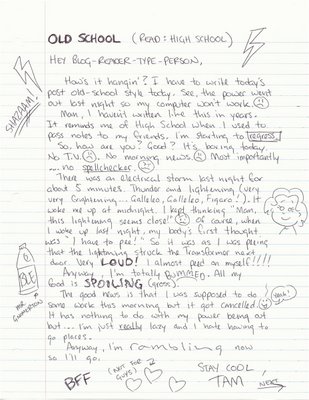 OLD SCHOOL (READ: HIGH SCHOOL)
HEY BLOG-READER-TYPE-PERSON,
How's it hangin'? I have to write today's
post old-school style today. See, the power went
out last night so my computer won't work.
Man, I haven't written like this in years.
It reminds me of High School when I used to
pass notes to my friends. I'm starting to regress.
So, how are you? Good? It's boring today.
No T.V. No morning news. Most importantly
... no spellchecker.
There was an electrical storm last night for
about 5 minutes. Thunder and lightening (very
very frightening... Galleleo, Galleleo, Figaro!). It
woke me up at midnight. I kept thinking "Man,
this lightening seems close!" Of course, when
I woke up last night, my body's first thought
was "I have to pee!" So it was as I was peeing
that the lightening struck the Transformer next
door. Very LOUD! I almost peed on myself!!!!!
Anyway, I'm totally BUMMED. All my
food is SPOILING (gross).
The good news is that I was supposed to do
some work this morning but it got cancelled.
It has nothing to do with my power being out
but... I'm just really lazy and I hate having to
go places.
Anyway, I'm rambling now
so I'll go.
SHAZAAM!
Yeah!
BFF
(NOT FOR GUYS)
STAY COOL,
TAM
NEXT